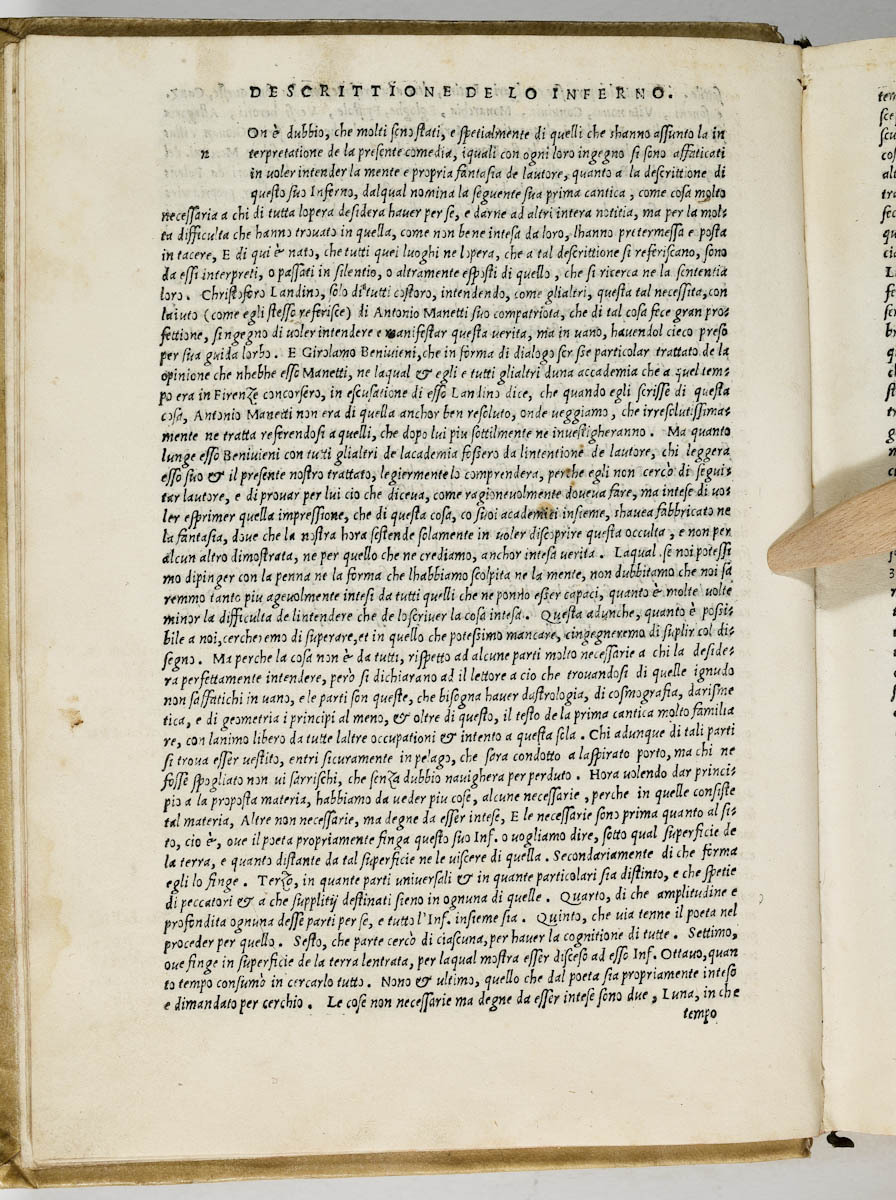 DESCRITTIONE DE LO INFERNO.
On è dubbio, che molti seno stati, e spetialmente di quelli che shanno assunto la in
n
terpretatione de la presente comedia, iquali con ogni loro ingegno si sono affaticati
in uoler intender la mente e propria fantasia de lautore, quanto a la descrittione di
questo suo Inferno, dalqual nomina la seguente sua prima cantica, come cosa molto
necessaria a chi di tutta lopera desidera hauer per se, e darne ad altri intera notitia, ma per la mol-
ta difficulta che hanno trouato in quella, come non bene intesa da loro, lhanno pretermessa e posta
in tacere, E di qui è nato, che tutti quei luoghi ne lopera, che a tal descrittione si referiscano, sono
da essi interpreti, o passati in silentio, o altramente esposti di quello, che si ricerca ne la sententia
loro. Christoforo Landino, solo di tutti costoro, intendendo, come glialtri, questa tal necessita, con
laiuto (come egli stesso referisce) di Antonio Manetti suo compatriota, che di tal cosa fece gran pro-
fettione, singegno di uoler intendere e manifestar questa uerita, ma in uano, hauendol cieco preso
per sua guida lorbo. E Girolamo Beniuieni, che in forma di dialogo scrisse particolar trattato de la
opinione che nhebbe esso Manetti, ne laqual & egli e tutti glialtri duna accademia che a quel tem-
po era in Firenze concorsero, in escusatione di esso Landino dice, che quando egli scrisse di questa
cosa, Antonio Manetti non era di quella anchor ben resoluto, onde ueggiamo, che irresolutissima-
mente ne tratta referendosi a quelli, che dopo lui piu sottilmente ne inuestigheranno. Ma quanto
lunge esso Beniuieni con tutti glialtri de lacademia fossero da lintentione de lautore, chi leggera
esso suo & il presente nostro trattato, legiermente lo comprendera, perche egli non cercò di segui-
tar lautore, e di prouar per lui cio che diceua, come ragioneuolmente doueua fare, ma intese di uo-
ler esprimer quella impressione, che di questa cosa, co suoi academici insieme, shauea fabbricato ne
la fantasia, doue che la nostra hora sestende solamente in uoler discoprire questa occulta, e non per
alcun altro dimostrata, ne per quello che ne crediamo, anchor intesa uerita. Laqual se noi potessi
mo dipinger con la penna ne la forma che lhabbiamo scolpita ne la mente, non dubbitamo che noi sa
remmo tanto piu ageuolmente intesi da tutti quelli che ne ponno esser capaci, quanto è molte uolte
minor la difficulta de lintendere che de loscriuer la cosa intesa. Questa adunche, quanto è possi-
bile a noi, cercheremo di superare, et in quello che potessimo mancare, cingegneremo di suplir col di-
segno. Ma perche la cosa non è da tutti, rispetto ad alcune parti molto necessarie a chi la deside-
ra perfettamente intendere, però si dichiarano ad il lettore a cio che trouandosi di quelle ignudo
non saffatichi in uano, e le parti son queste, che bisogna hauer dastrologia, di cosmografia, darisme
tica, e di geometria i principi al meno, & oltre di questo, il testo de la prima cantica molto familia
re, con lanimo libero da tutte laltre occupationi & intento a questa sola. Chi adunque di tali parti
si troua esser uestito, entri sicuramente in pelago, che sara condotto a laspirato porto, ma chi ne
fosse spogliato non ui sarrischi, che senza dubbio nauighera per perduto. Hora uolendo dar princi-
pio a la proposta materia, habbiamo da ueder piu cose, alcune necessarie, perche in quelle consiste
tal materia, Altre non necessarie, ma degne da esser intese, E le necessarie sono prima quanto al si-
to, cio è, oue il poeta propriamente finga questo suo Inf. o uogliamo dire, sotto qual superficie de
la terra, e quanto distante da tal superficie ne le uiscere di quella. Secondariamente di che forma
egli lo finge. Terzo, in quante parti uniuersali & in quante particolari sia distinto, e che spetie
di peccatori & a che supplitij destinati sieno in ognuna di quelle. Quarto, di che amplitudine e
profondita ognuna desse parti per se, e tutto l'Inf. insieme sia. Quinto, che uia tenne il poeta nel
proceder per quello. Sesto, che parte cercò di ciascuna, per hauer la cognitione di tutte. Settimo,
oue finge in superficie de la terra lentrata, per laqual mostra esser disceso ad esso Inf. Ottauo, quan
to tempo consumò in cercarlo tutto. Nono & ultimo, quello che dal poeta sia propriamente inteso
e dimandato per cerchio. Le cose non necessarie ma degne da esser intese sono due, Luna, in che
tempo